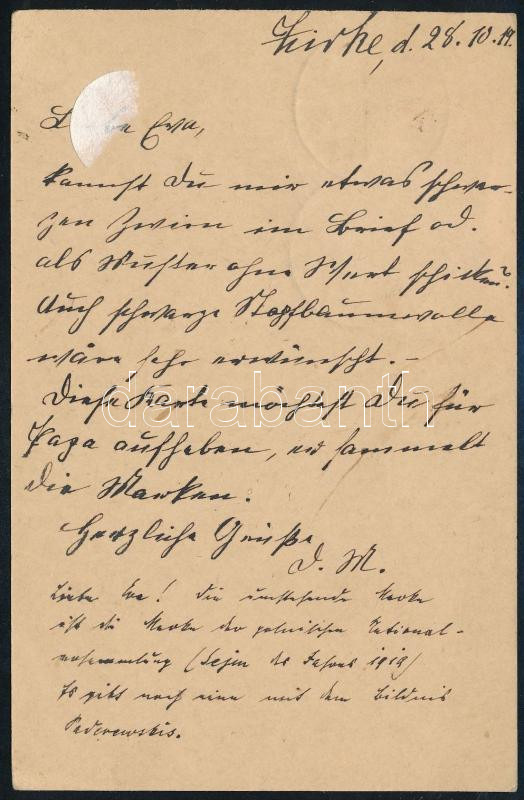 Zirke, d. 28.10.19.
Liebe Eva,
kannst Du mir etwas schwar-
zen Zwirn im Brief od.
als Muster ohne Wert schicken?
Auch schwarze Stopfbaumwolle
wäre sehr erwünscht. –
Diese Karte möchtest Du für
Papa aufheben, er sammelt
die Marken.
Herzliche Grüße
D. M.
Liebe Eva! Die umstehende Marke
ist die Marke der polnischen National-
versammlung (Sejm des Jahres 1919)
Es gibt noch eine mit dem Bildnis
Paderewskis.
darabanth